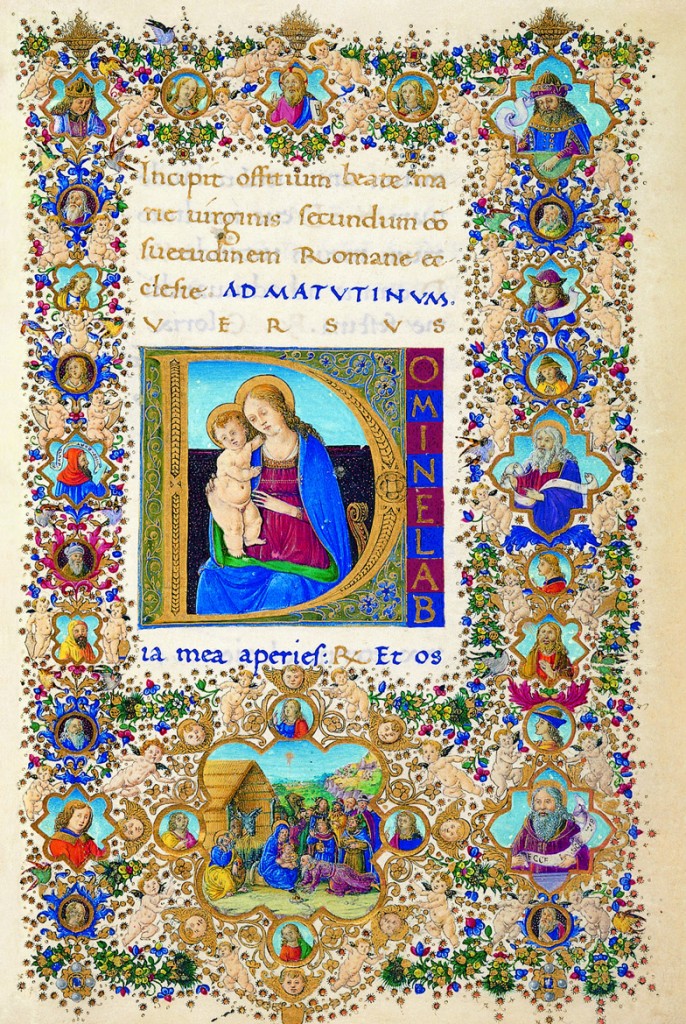 Incipit offitium beate ma
rie uirginis secundum cō
suetudinem Romane ec
clesie AD MATVTINVM.
VERSVS
DOMINELAB
ia mea aperies: ℞ Et os
ECCE